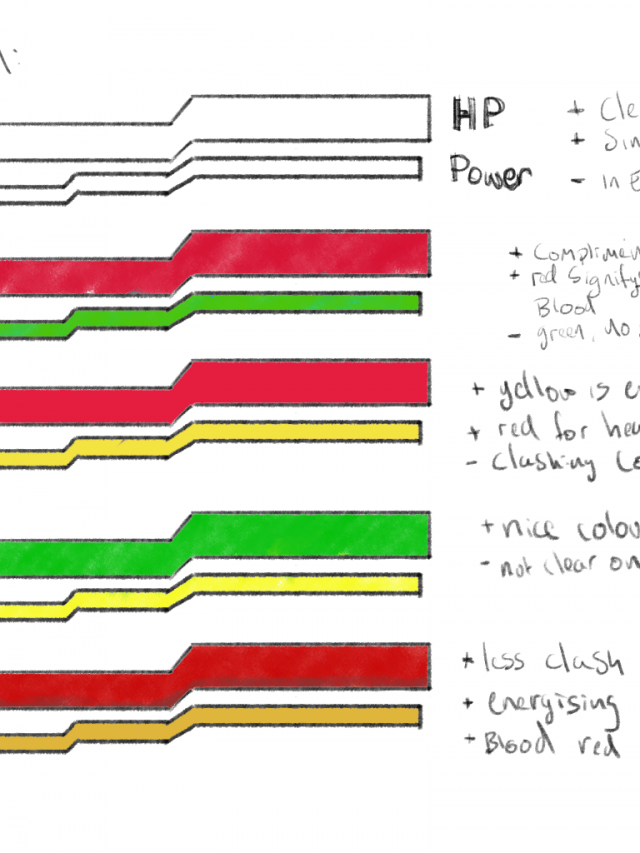 HP
+ Cle
+ Sim
Power
- in E
+ Complimen
+ red Signify
Blood
- green, no
+ yellow is e
+ red for hea
- clashing Co
+ nice colou
- not clear on
+ less clash
+ energising
+ Blood red